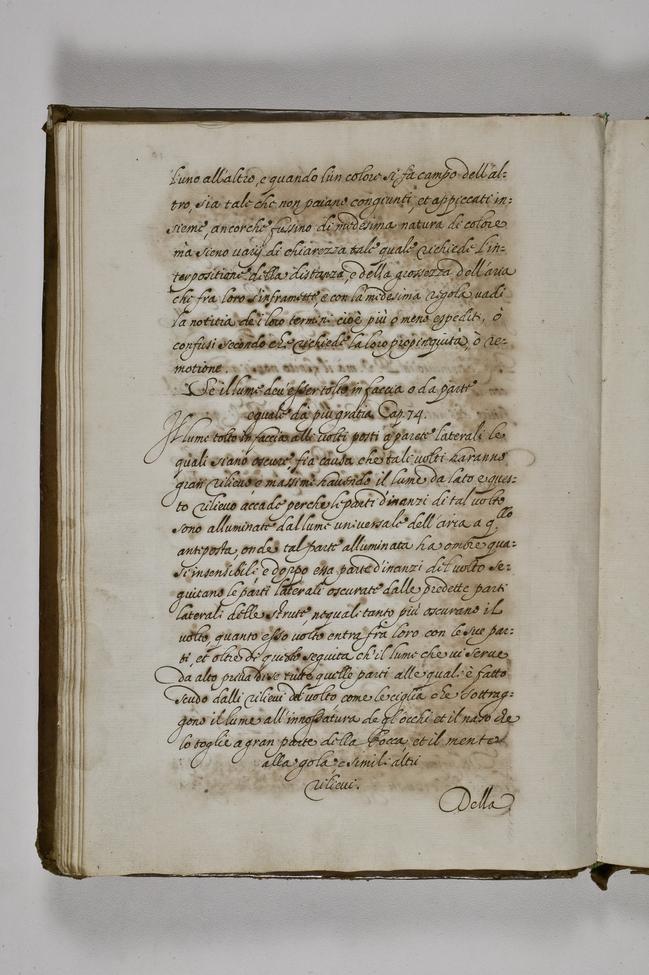 l'uno all'altro, e quando l'un colore si fa campo dell'al-
tro, sia tale che non paiano congiunti, et appiccati in-
sieme, ancorche fussino di medesima natura di colore
ma sieno varij di chiarezza tale quale richiede l'in-
terpositione della distanza, e della grossezza dell'aria
che fra loro s'inframette e con la medesima regola vadi
la notitia de i loro termini cioè più o meno espediti, ò
confusi secondo che richiede la loro propinquità, ò re-
motione.
Se il lume deu'esser tolto in faccia o da parte
e quale da piu gratia Cap. 74.
Il lume tolto in faccia alli uolti posti a parete laterali le
quali siano oscure, fia causa che tali uolti haranno
gran rilieuo e massime hauendo il lume da lato e ques-
to rilieuo accade perche le parti d'inanzi di tal uolto
sono alluminate dal lume uniuersale dell'aria a q.llo
antiposta, onde tal parte alluminata ha ombre qua-
si insensibile e doppo essa parte d'inanzi del uolto se-
guitano le parti laterali oscurate dalle predette parti
laterali delle strade, ne quali tanto più oscurano il
uolto, quanto esso uolto entra fra loro con le sue par-
ti, et oltre di questo seguita ch'il lume che ui serue
da alto priua di se tutte quelle parti alle quali è fatto
scudo dalli rilieui del uolto come le ciglia che sottrag-
gono il lume all'innossatura de gl'occhi et il naso che
lo toglie a gran parte della bocca, et il mente
alla gola e simili altri
rilieui.
Della